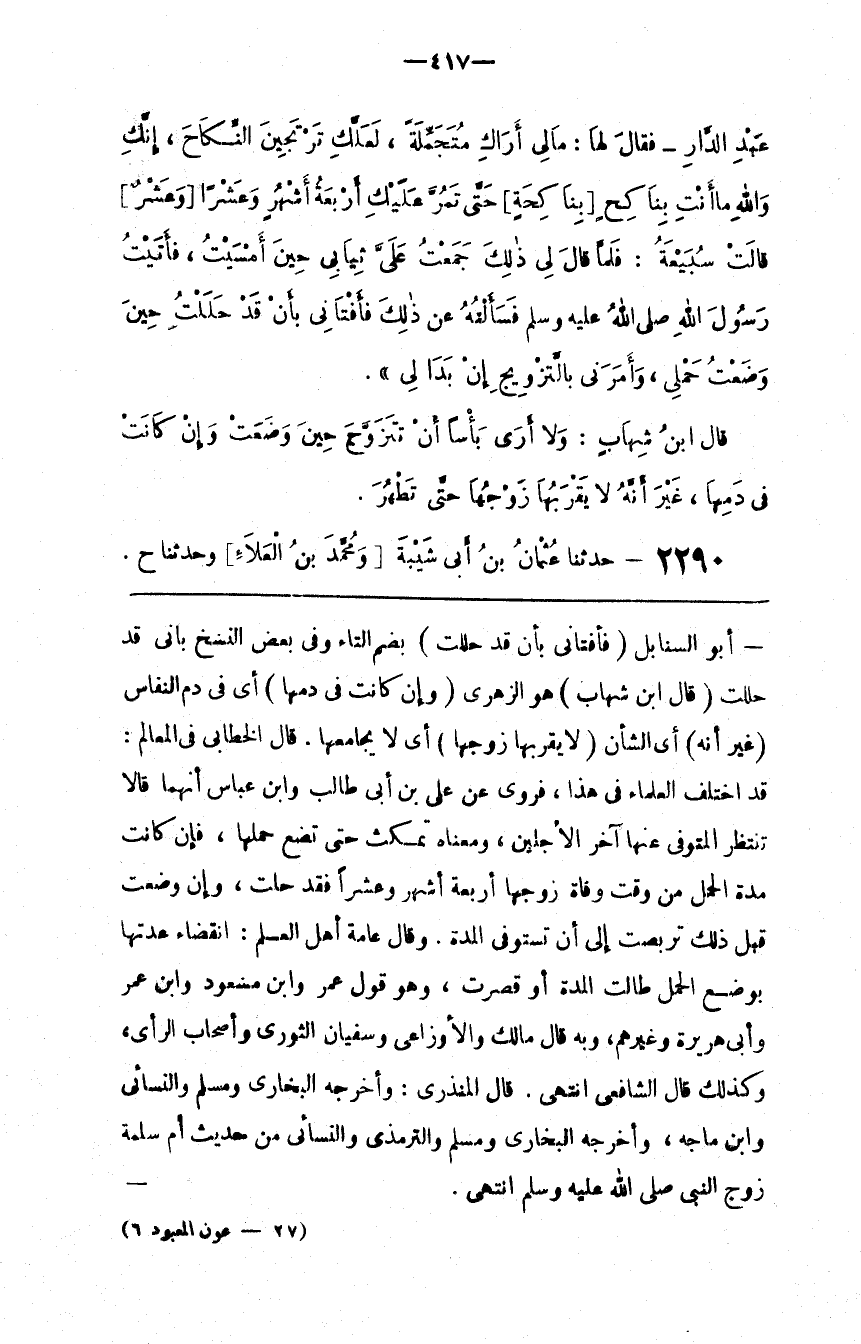 —٤١٧—
عَبْدِ الدَّارِ ـ فقالَ لها : مَالِي أَرَاكِ مُتَجَمِّلَةً ، لَعَلَّكِ تَرْتَجِينَ النِّكَاحَ ، إِنَّكِ
وَاللهِ ما أَنْتِ بِنَاكِحٍ [بِنَاكِحَةٍ] حَتَّى تَمُرَّ عَلَيْكِ أَرْبَعَةُ أَشْهُرٍ وَعَشْرًا [وَعَشْرٌ]
قالَتْ سُبَيْعَةُ : فَلَمَّا قالَ لِي ذٰلِكَ جَمَعْتُ عَلَيَّ ثِيابِي حِينَ أَمْسَيْتُ ، فأَتَيْتُ
رَسُولَ اللهِ صلى اللهُ عليه وسلم فَسَأَلْتُهُ عن ذٰلِكَ فأَفْتَانِي بأَنْ قَدْ حَلَلْتُ حِينَ
وَضَعْتُ حَمْلِي ، وَأَمَرَنِي بالتَّزْوِيجِ إِنْ بَدَا لِي » .
قال ابنُ شِهابٍ : وَلا أَرَى بَأْساً أَنْ تَتَزَوَّجَ حِينَ وَضَعَتْ وَإِنْ كَانَتْ
فِي دَمِها ، غَيْرَ أَنَّهُ لا يَقْرَبُهَا زَوْجُهَا حَتَّى تَطْهُرَ .
٢٢٩٠ — حدثنا عُثْمانُ بنُ أَبِي شَيْبَةَ [ وَمُحَمَّدُ بنُ الْعَلاَءِ] وحدثنا ح .
— أبو السنابل ( فأفتانى بأن قد حللت ) بضم التاء وفى بعض النسخ بانى قد
حللت ( قال ابن شهاب ) هو الزهرى ( وإن كانت فى دمها ) أى فى دم النفاس
(غير أنه) أى الشأن ( لا يقربها زوجها ) أى لا يجامعها . قال الخطابى فى المعالم :
قد اختلف العلماء فى هذا ، فروى عن على بن أبى طالب وابن عباس أنهما قالا
تنتظر المتوفى عنها آخر الأجلين ، ومعناه تمكث حتى تضع حملها ، فإن كانت
مدة الحمل من وقت وفاة زوجها أربعة أشهر وعشراً فقد حلت ، وإن وضعت
قبل ذلك تربصت إلى أن تستوفى المدة . وقال عامة أهل العلم : انقضاء عدتها
بوضع الحمل طالت المدة أو قصرت ، وهو قول عمر وابن مسعود وابن عمر
وأبى هريرة وغيرهم، وبه قال مالك والأوزاعى وسفيان الثورى وأصحاب الرأى،
وكذلك قال الشافعى انتهى . قال المنذرى : وأخرجه البخارى ومسلم والنسائى
وابن ماجه ، وأخرجه البخارى ومسلم والترمذى والنسائى من حديث أم سلمة
زوج النبى صلى الله عليه وسلم انتهى . —
(٢٧ — عون المعبود ٦)